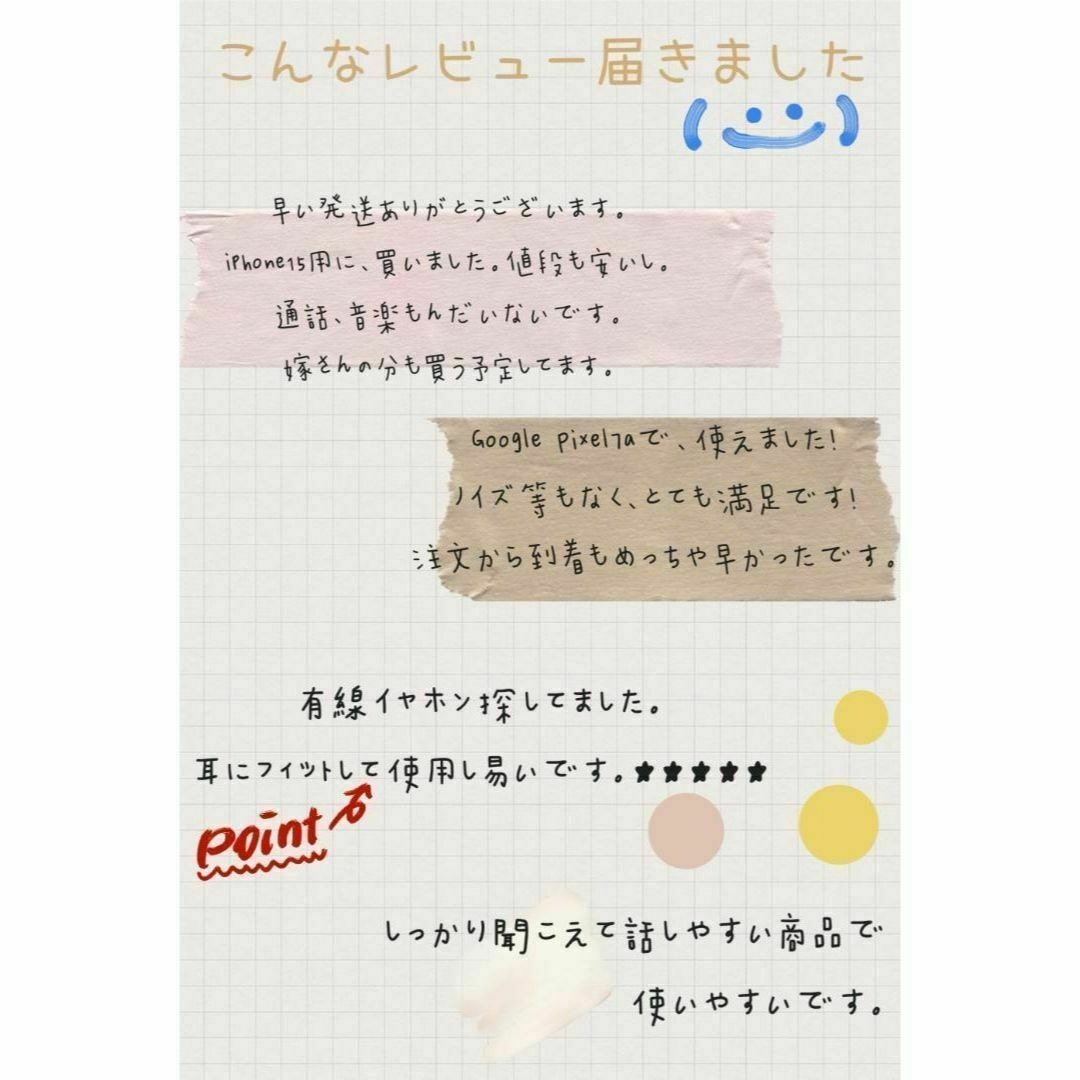 こんなレビュー届きました
早い発送ありがとうございます。
iPhone15用に、買いました。値段も安いし。
通話、音楽もんだいないです。
嫁さんの分も買う予定してます。
Google pixel7aで、使えました!
ノイズ等もなく、とても満足です!
注文から到着もめっちゃ早かったです。
有線イヤホン探してました。
耳にフィットして使用し易いです。★★★★★
Point
しっかり聞こえて話しやすい商品で
使いやすいです。